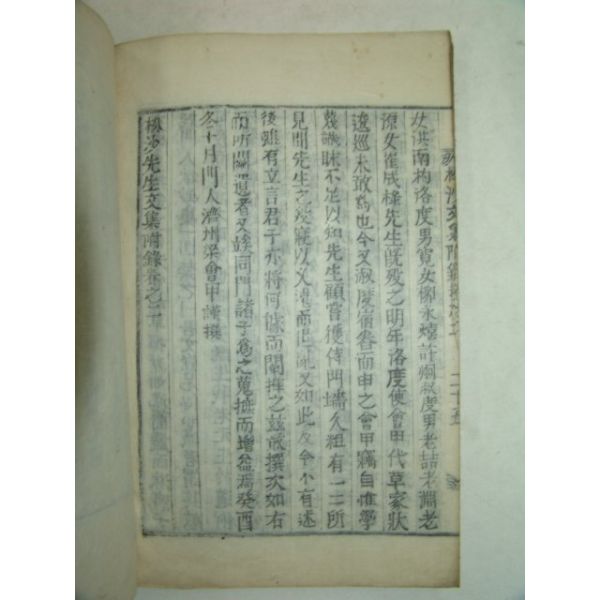 女洪南杓洛度男寬女柳永嬉許炯叔度男老喆老淵老
源女崔成樑先生旣歿之明年洛度使會甲代草家狀
逡巡未敢爲也今又淑度宿舂而申之會甲竊自惟學
識昧不足以知先生顧嘗獲侍門墻久粗有一二所
見聞先生之又如此及今不有述
後雖有立言君子亦將何據而闡揮之玆敢撰次如右
而所闕遺者又竢同門諸子爲之蒐摭而增益焉癸酉
冬十月門人濟州梁會甲謹撰
先生文集附錄卷之二
文集附錄卷之二 二十五